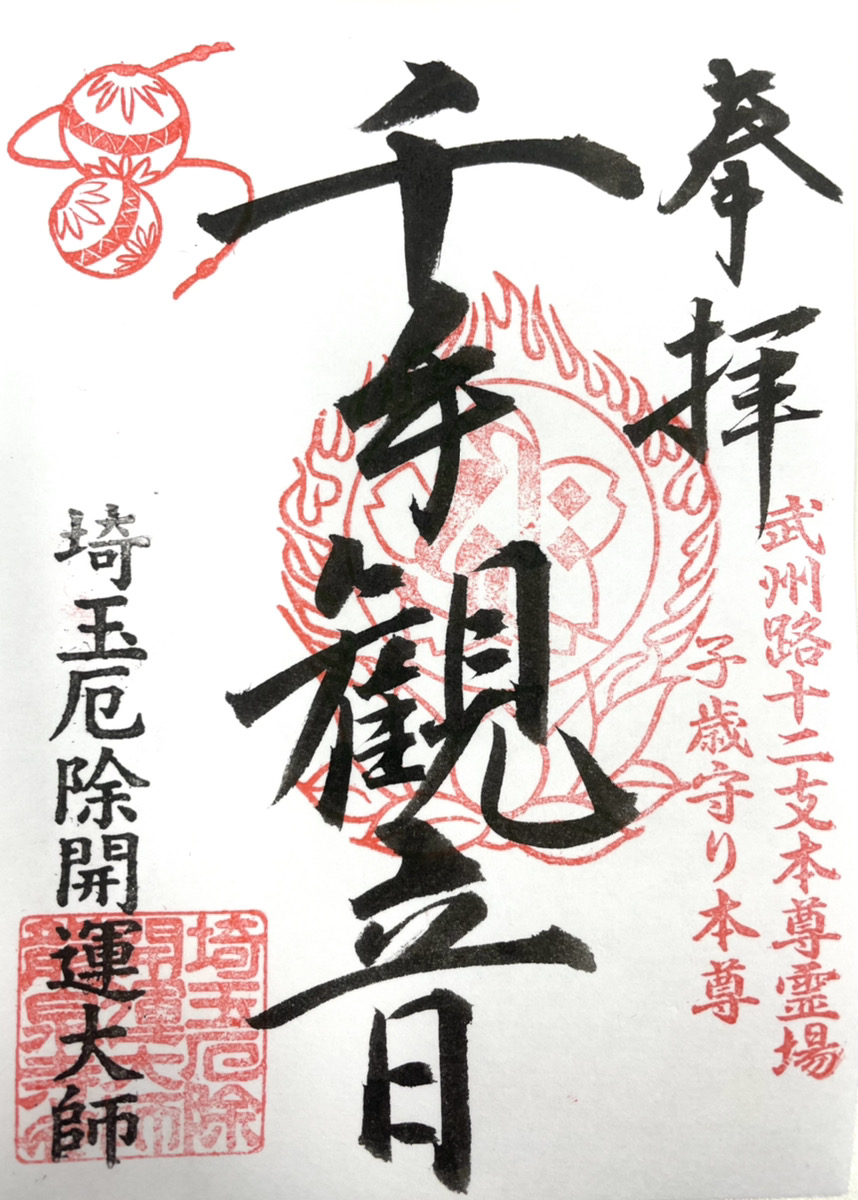 奉拝
武州路十二支本尊霊場
子歳守り本尊
千手観音
埼玉厄除開運大師
埼玉厄除
開運大師
龍泉寺